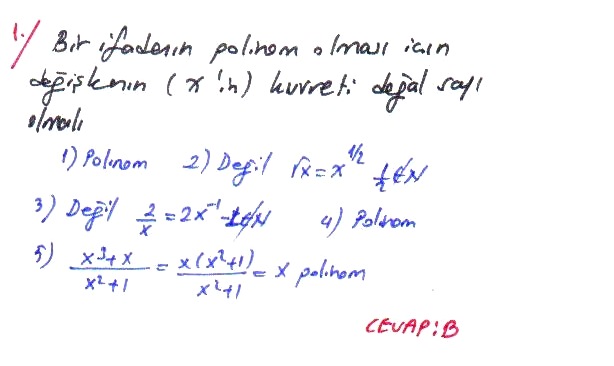 1./ Bir ifadenin polinom olması için
değişkenin (x'in) kuvveti doğal sayı
olmalı
1) Polinom 2) Değil √x = x^1/2 1/2 ∉ N
3) Değil 2/x = 2x^-1 -1 ∉ N 4) Polinom
5) (x^3 + x)/(x^2 + 1) = x(x^2 + 1)/(x^2 + 1) = x polinom
CEVAP: B